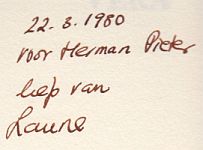 22.3.1980
voor Herman Pieter
liefs van
Laurie